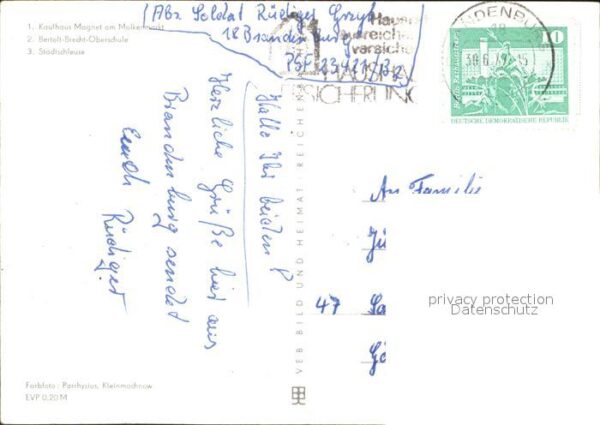 1. Kaufhaus Magnet am Molkenmarkt
2. Bertolt-Brecht-Oberschule
3. Stadtschleuse
Abs. Soldat Rüdiger
18 Brandenburg
PSF 23421/B2
Haus
ausreichend
versichert
HAUS
VERSICHERUNG
BRANDENBURG
30.6.77-15
10
DEUTSCHE DEMOKRATISCHE REPUBLIK
Hallo Ihr beiden!
Herzliche Grüße hier aus
Brandenburg sendet
Euch Rüdiger
VEB BILD UND HEIMAT REICHENBACH
An Familie
Jü
47 Sa
Gö
privacy protection
Datenschutz
Farbfoto: Parchysius, Kleinmachnow
EVP 0,20 M